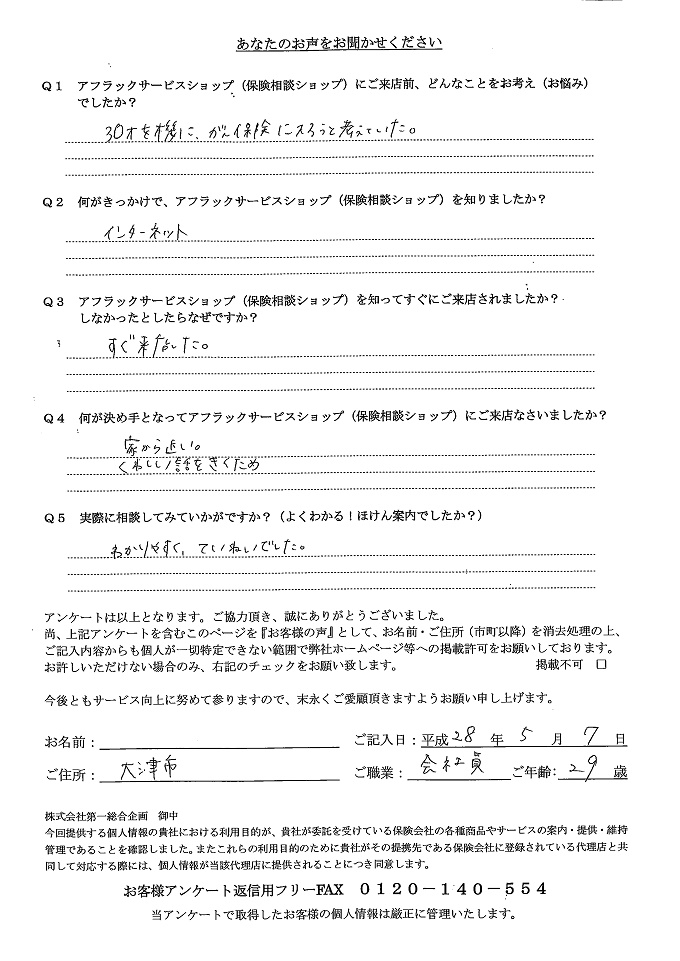 あなたのお声をお聞かせください
Q1 アフラックサービスショップ(保険相談ショップ)にご来店前、どんなことをお考え(お悩み)
でしたか?
30才を機に、がん保険に入ろうと考えていた。
Q2 何がきっかけで、アフラックサービスショップ(保険相談ショップ)を知りましたか?
インターネット
Q3 アフラックサービスショップ(保険相談ショップ)を知ってすぐにご来店されましたか?
しなかったとしたらなぜですか?
すぐ来店した。
Q4 何が決め手となってアフラックサービスショップ(保険相談ショップ)にご来店なさいましたか?
家から近い。
くわしい話をきくため
Q5 実際に相談してみていかがですか?(よくわかる!ほけん案内でしたか?)
わかりやすく、ていねいでした。
アンケートは以上となります。ご協力頂き、誠にありがとうございました。
尚、上記アンケートを含むこのページを『お客様の声』として、お名前・ご住所(市町以降)を消去処理の上、
ご記入内容からも個人が一切特定できない範囲で弊社ホームページ等への掲載許可をお願いしております。
お許しいただけない場合のみ、右記のチェックをお願い致します。 掲載不可 □
今後ともサービス向上に努めて参りますので、末永くご愛顧頂きますようお願い申し上げます。
お名前: ご記入日:平成28年5月7日
ご住所:大津市 ご職業:会社員 ご年齢:29歳
株式会社第一総合企画 御中
今回提供する個人情報の貴社における利用目的が、貴社が委託を受けている保険会社の各種商品やサービスの案内・提供・維持
管理であることを確認しました。またこれらの利用目的のために貴社がその提携先である保険会社に登録されている代理店と共
同して対応する際には、個人情報が当該代理店に提供されることにつき同意します。
お客様アンケート返信用フリーFAX 0120-140-554
当アンケートで取得したお客様の個人情報は厳正に管理いたします。